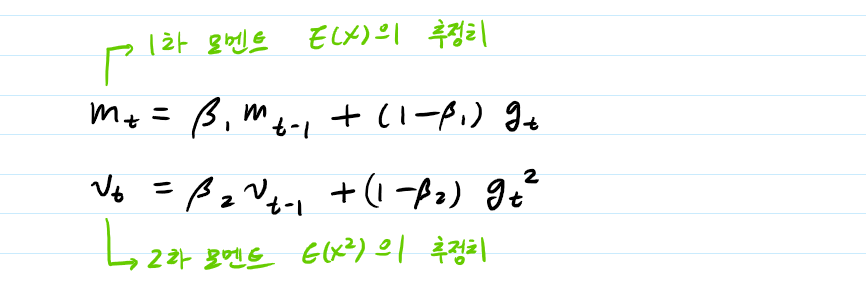 1차 모멘트 E(X)의 추정치
m_t = β_1 m_{t-1} + (1-β_1) g_t
v_t = β_2 v_{t-1} + (1-β_2) g_t^2
2차 모멘트 E(X^2)의 추정치